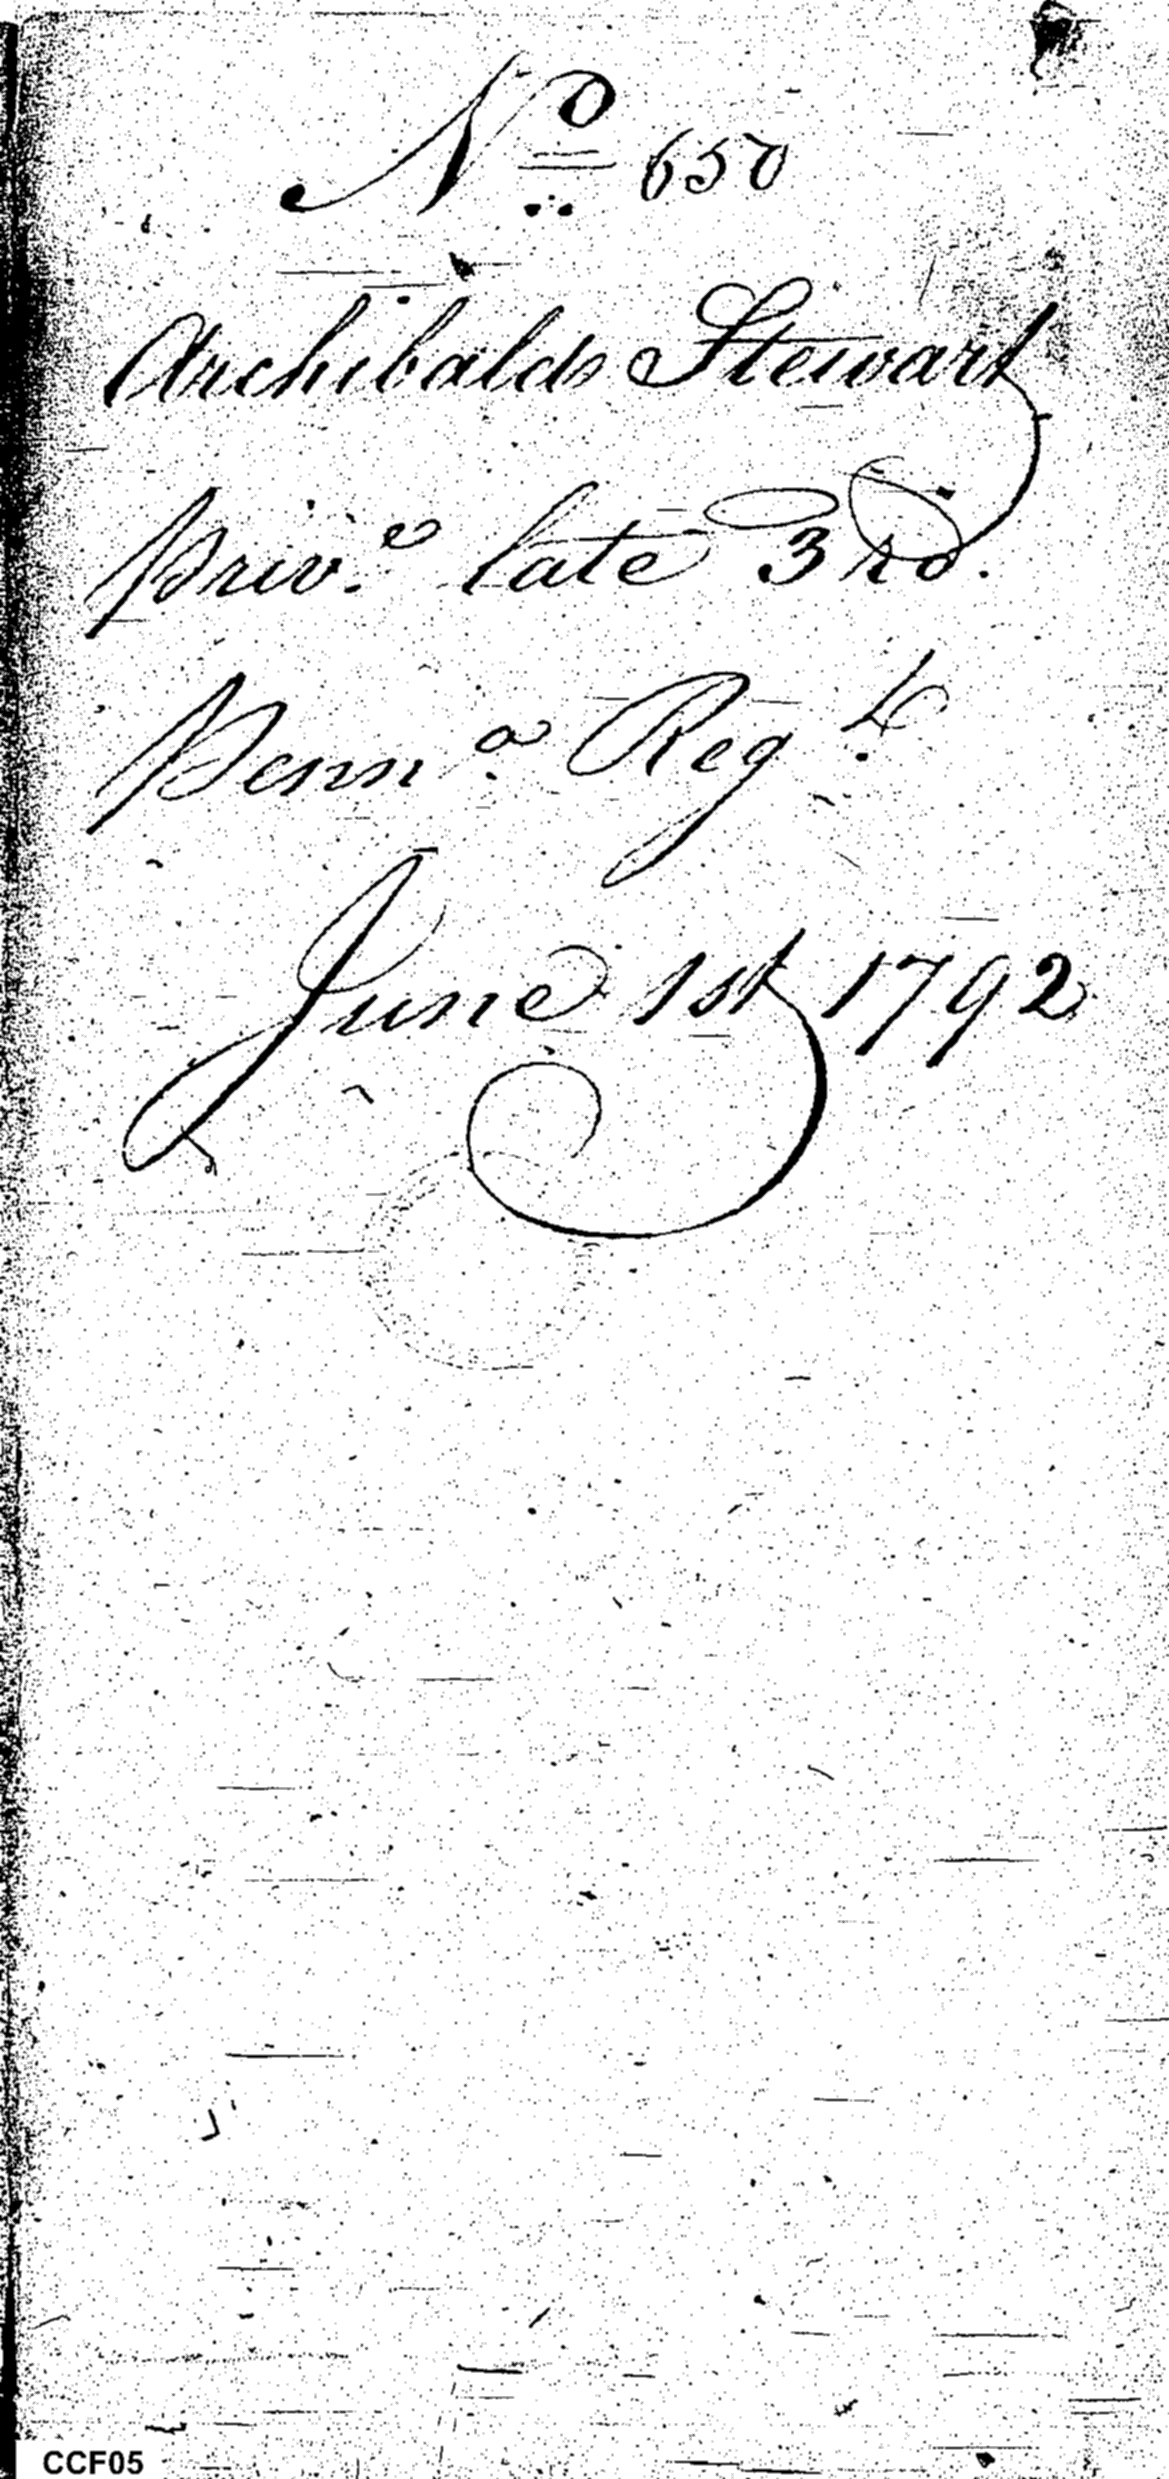 No 650
Archibald Stewart
Priv.e late 3rd.
Penn.a Reg.t
June 1st 1792
CCF05